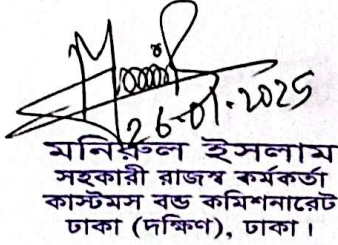 26-01-2025
মনিরুল ইসলাম
সহকারী রাজস্ব কর্মকর্তা
কাস্টমস বন্ড কমিশনারেট
ঢাকা (দক্ষিণ), ঢাকা।